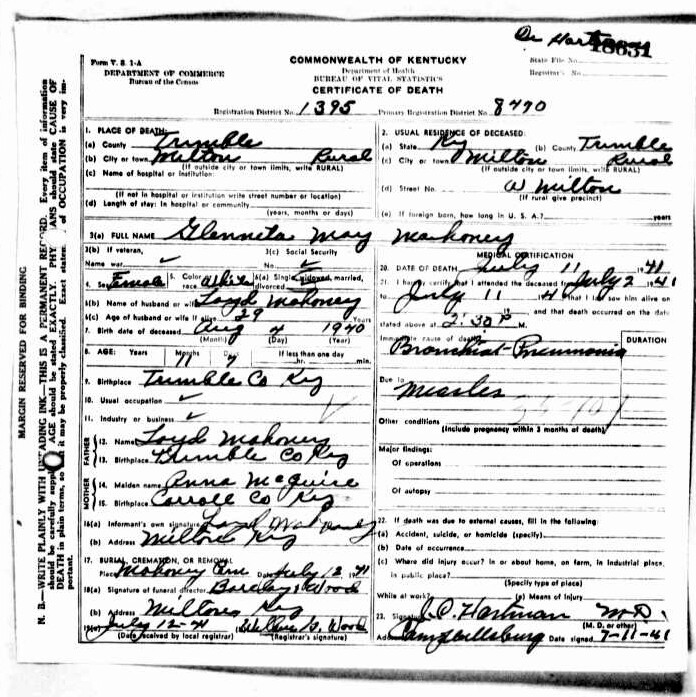 Dr Hart
18631
Form V. S. 1-A
DEPARTMENT OF COMMERCE
Bureau of the Census
COMMONWEALTH OF KENTUCKY
Department of Health
BUREAU OF VITAL STATISTICS
CERTIFICATE OF DEATH
State File No.
Registrar's No.
Registration District No. 1395 Primary Registration District No. 8470
MARGIN RESERVED FOR BINDING
N. B.—WRITE PLAINLY WITH UNFADING INK—THIS IS A PERMANENT RECORD. Every item of information
should be carefully supplied. AGE should be stated EXACTLY. PHYSICIANS should state CAUSE OF
DEATH in plain terms, so that it may be properly classified. Exact statement of OCCUPATION is very im-
portant.
1. PLACE OF DEATH:
(a) County Trimble
(b) City or town Milton Rural
(If outside city or town limits, write RURAL)
(c) Name of hospital or institution:
(If not in hospital or institution write street number or location)
(d) Length of stay: In hospital or community
(years, months or days)
2. USUAL RESIDENCE OF DECEASED:
(a) State Ky (b) County Trimble
(c) City or town Milton Rural
(If outside city or town limits, write RURAL)
(d) Street No. W Milton
(If rural give precinct)
(e) If foreign born, how long in U. S. A.? years
3(a) FULL NAME Glenneta May Mahoney
3(b) If veteran, 3(c) Social Security
Name war No.
4. Sex Female 5. Color or race White 6(a) Single, widowed, married,
divorced
6(b) Name of husband or wife Loyd Mahoney
6(c) Age of husband or wife if alive 29 Years
7. Birth date of deceased Aug 4 1940
(Month) (Day) (Year)
8. AGE: Years Months Days If less than one day
11 7 hr. min.
9. Birthplace Trimble Co Ky
10. Usual occupation ✓
11. Industry or business ✓
FATHER
12. Name Loyd Mahoney
13. Birthplace Trimble Co Ky
MOTHER
14. Maiden name Anna McGuire
15. Birthplace Carroll Co Ky
16(a) Informant's own signature Loyd Mahoney
(b) Address Milton Ky
17. BURIAL, CREMATION, OR REMOVAL
Place Mahoney Cem Date July 12 1941
18(a) Signature of funeral director Barclay & Wood
(b) Address Milton Ky
19(a) July 12-41
(Date received by local registrar) (Registrar's signature)
MEDICAL CERTIFICATION
20. DATE OF DEATH July 11 1941
21. I hereby certify that I attended the deceased from July 2 1941
to July 11 41 that I last saw him alive on
and that death occurred on the date
stated above at 2:30 P m.
Immediate cause of death DURATION
Bronchial-Pneumonia
Due to
Measles
Other conditions
(Include pregnancy within 3 months of death)
Major findings:
Of operations
Of autopsy
22. If death was due to external causes, fill in the following:
(a) Accident, suicide, or homicide (specify)
(b) Date of occurrence
(c) Where did injury occur? In or about home, on farm, in industrial place,
in public place?
(Specify type of place)
While at work? (e) Means of injury
23. Signature J.O. Hartman M.D.
(M. D. or other)
Address Campbellsburg Date signed 7-11-41